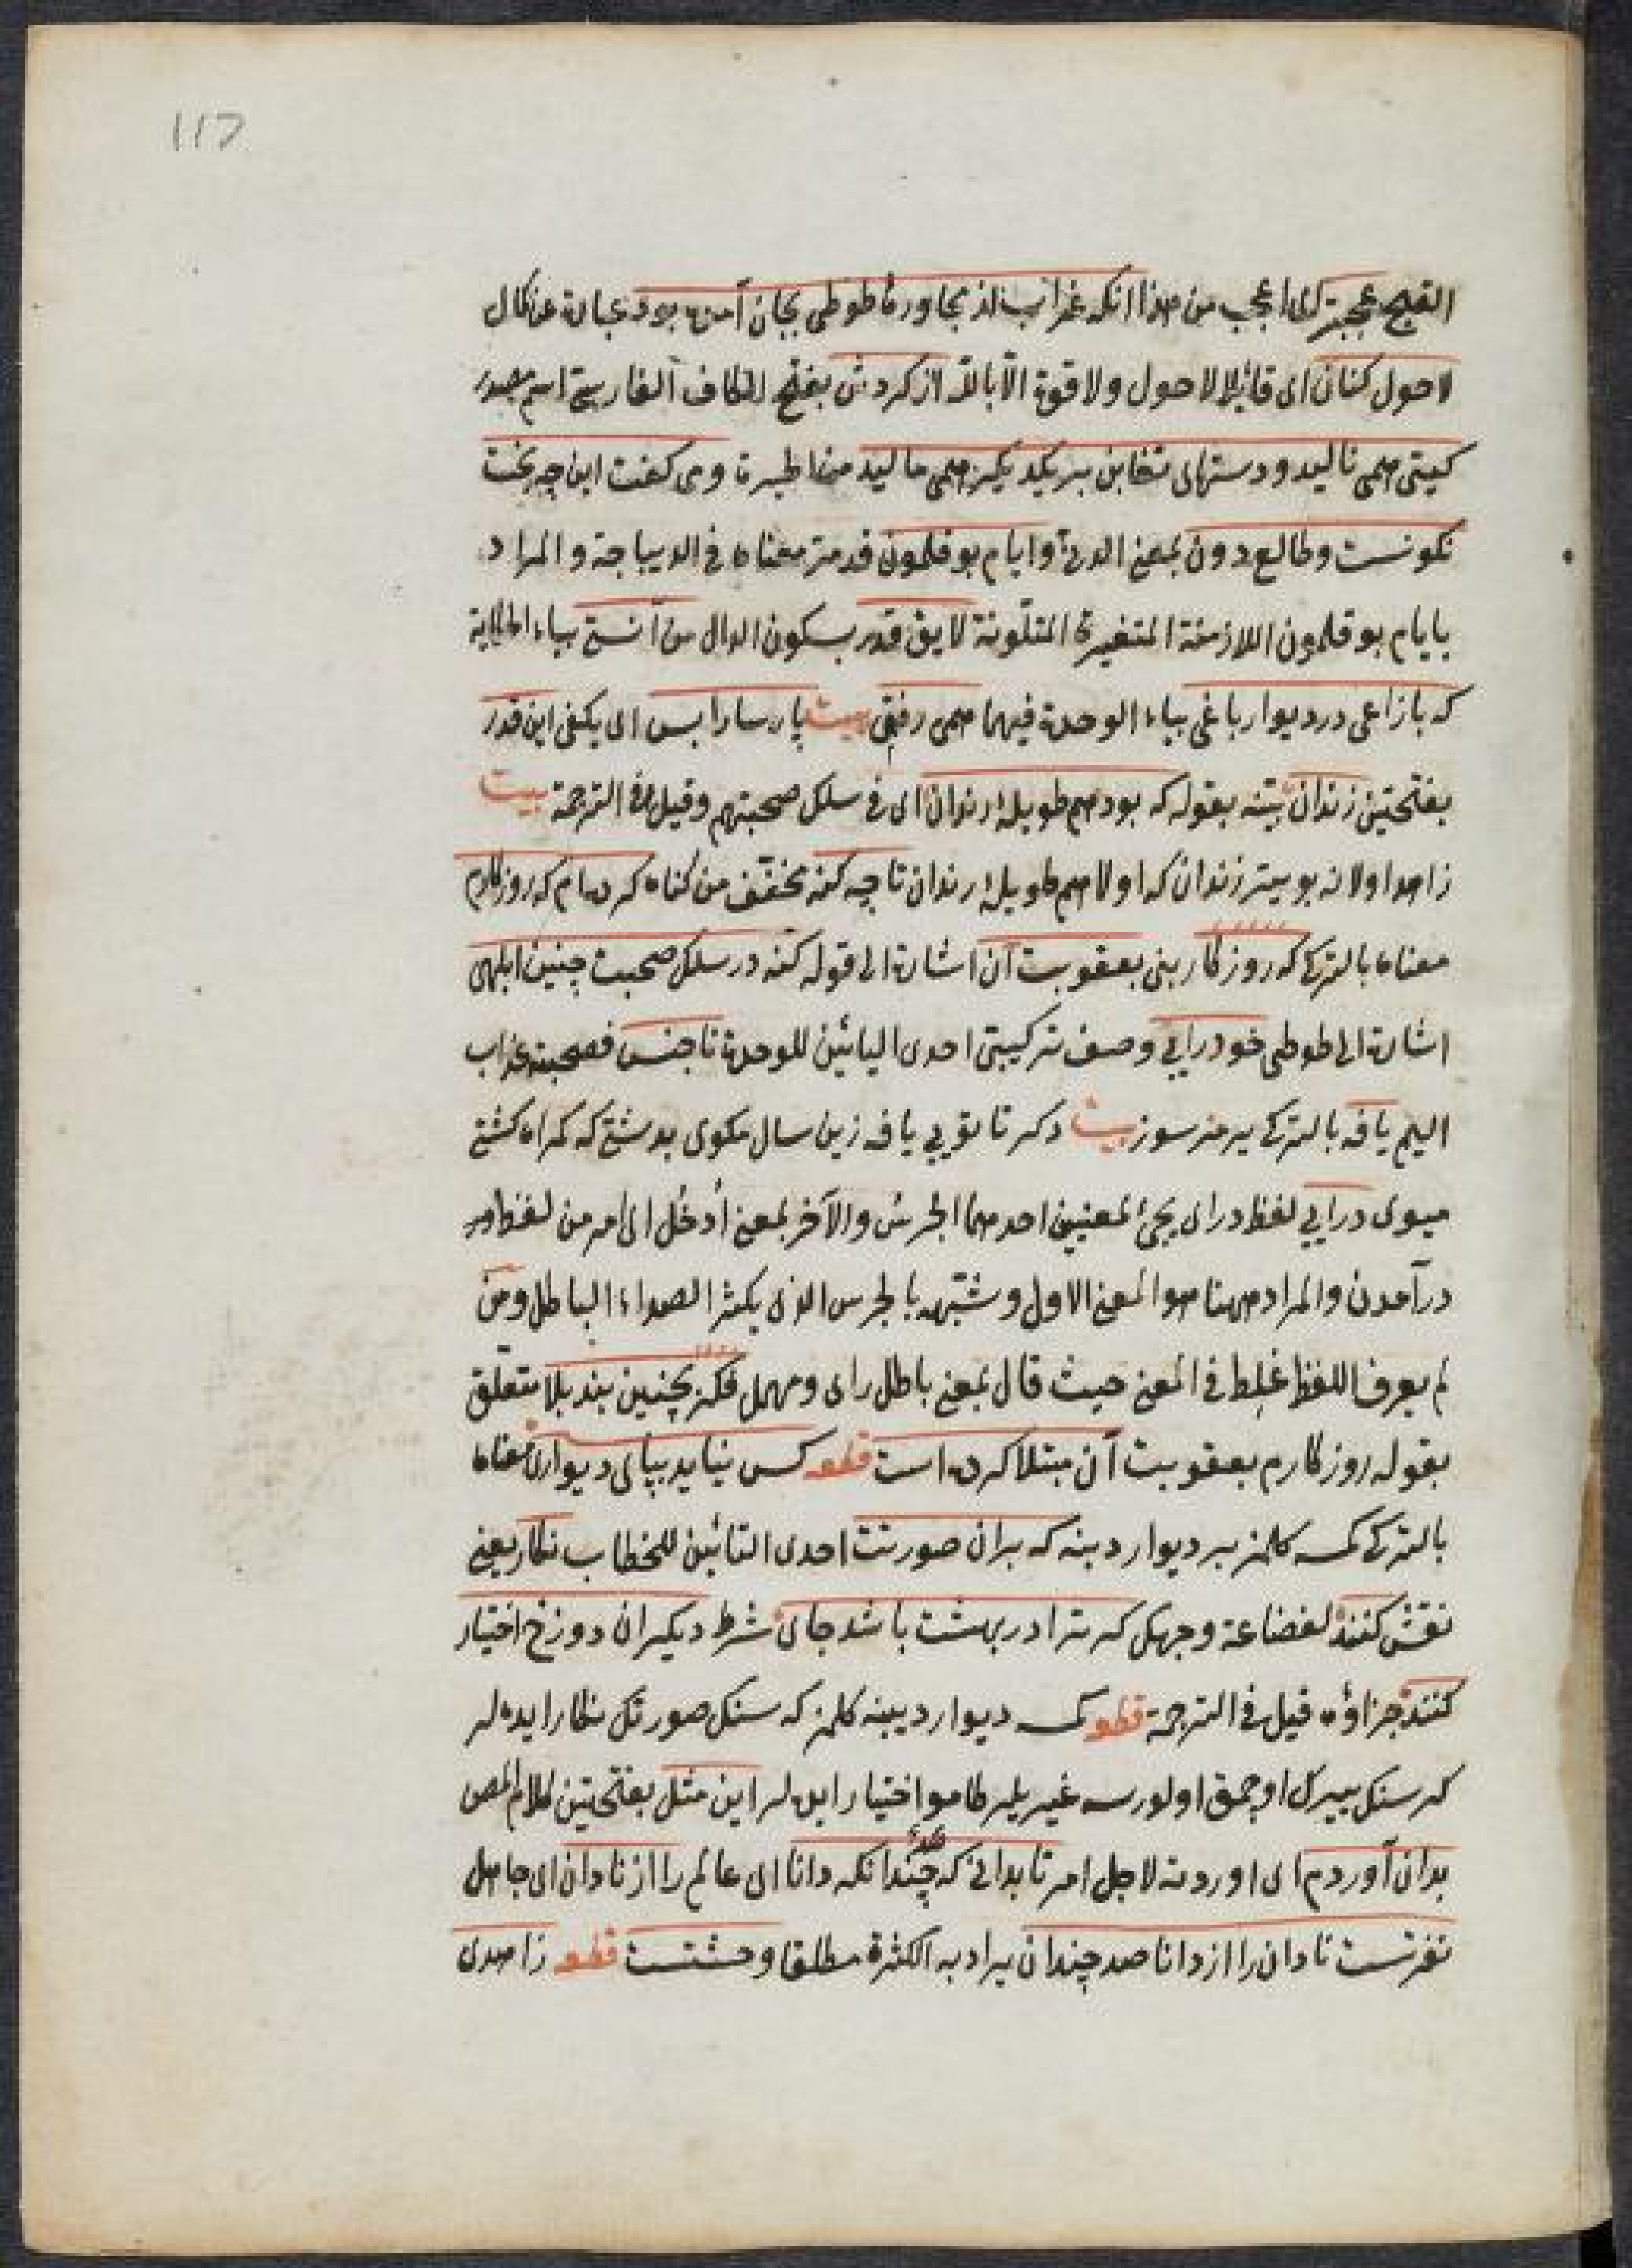 117
القبح عجبتر اى اعجب من هذا انكه غراب از مجاورة طوطى بجان آمده بود عبارة عن كمال
لاحول كنان اى قائلا لا حول ولا قوة الا بالله از كردش بفتح الكاف الفارسية اسم مصدر
كيتى همى ناليد ودستهاى تغابن بر يكديكر همى ماليد من اطيره ومى كفت اين چه بخت
نكونست وطالع دون بمعنى الدنئ وايام بوقلمون قد مر معناه فى الديباجة والمراد
بايام بوقلمون الازمنة المتغيرة المتلونة لايق قدر بسكون الدال من آنستى بياء الحكاية
كه با زاغى در ديوار باغى بياء الوحدة فيهما همى رفتمى بيت پارسا را بس اى يكفى اين قدر
بفتحتين زندان بينه بقوله كه بود هم طويلهٔ رندان اى فى سلك صحبتهم وقيل فى الترجمة بيت
زاهدا ولانه بو يتر زندان كه اولا هم طويلهٔ رندان تا چه كنه مخفف من كناه كرده ام كه روزكارم
معناه بالتركى كه روزكار بنى بعقوبت آن اشارة الى قوله كنه در سلك صحبت چنين ابلهى
اشارة الى طوطى خودرايى وصف تركيبى احدى اليائين للوحدة ناجنس فصحبته عذاب
اليم يافه بالتركى يرمز سوز بيت دكر تا بويى يافه زين سال مكوى بدشتى كه كمراه كشتى
ميوى درايى لفظ دراى يجئ لمعنيين احدهما الجرس والآخر بمعنى ادخل اى امر من لفظ در
درآمدن والمراد ههنا هو المعنى الاول وشبهه بالجرس الذى يكثر الصداء الباطل ومن
لم يعرف اللفظ غلط فى المعنى حيث قال بمعنى باطل راى ومهمل فكر بچنين بند بلا متعلق
بقوله روزكارم بعقوبت آن مبتلا كرده است قطعه كس نيايد بپاى ديوارى معناه
بالتركى كمسه كلمز بر ديوار دبنه كه بران صورتت احدى التائين للخطاب نكار يعنى
نقش كنند لفضاعة وجهك كه ترا در بهشت باشد جاى شرط ديكران دوزخ اختيار
كنند جزاؤه قيل فى الترجمة قطعه كمسه ديوار ديبنه كلمز كه سنك صورتك نكار ايده لر
كر سنك ييرك اوچمق اولورسه غيريلر طامو اختيار ايده لر اين مثل بفتحتين كلام المص
بدان آوردم اى اوردته لاجل امر تا بدانى كه چندانكه دانا اى عالم را از نادان اى جاهل
نفرتست نادان را از دانا صد چندان يراد به الكثرة مطلقا وحشتست قطعه زاهدى